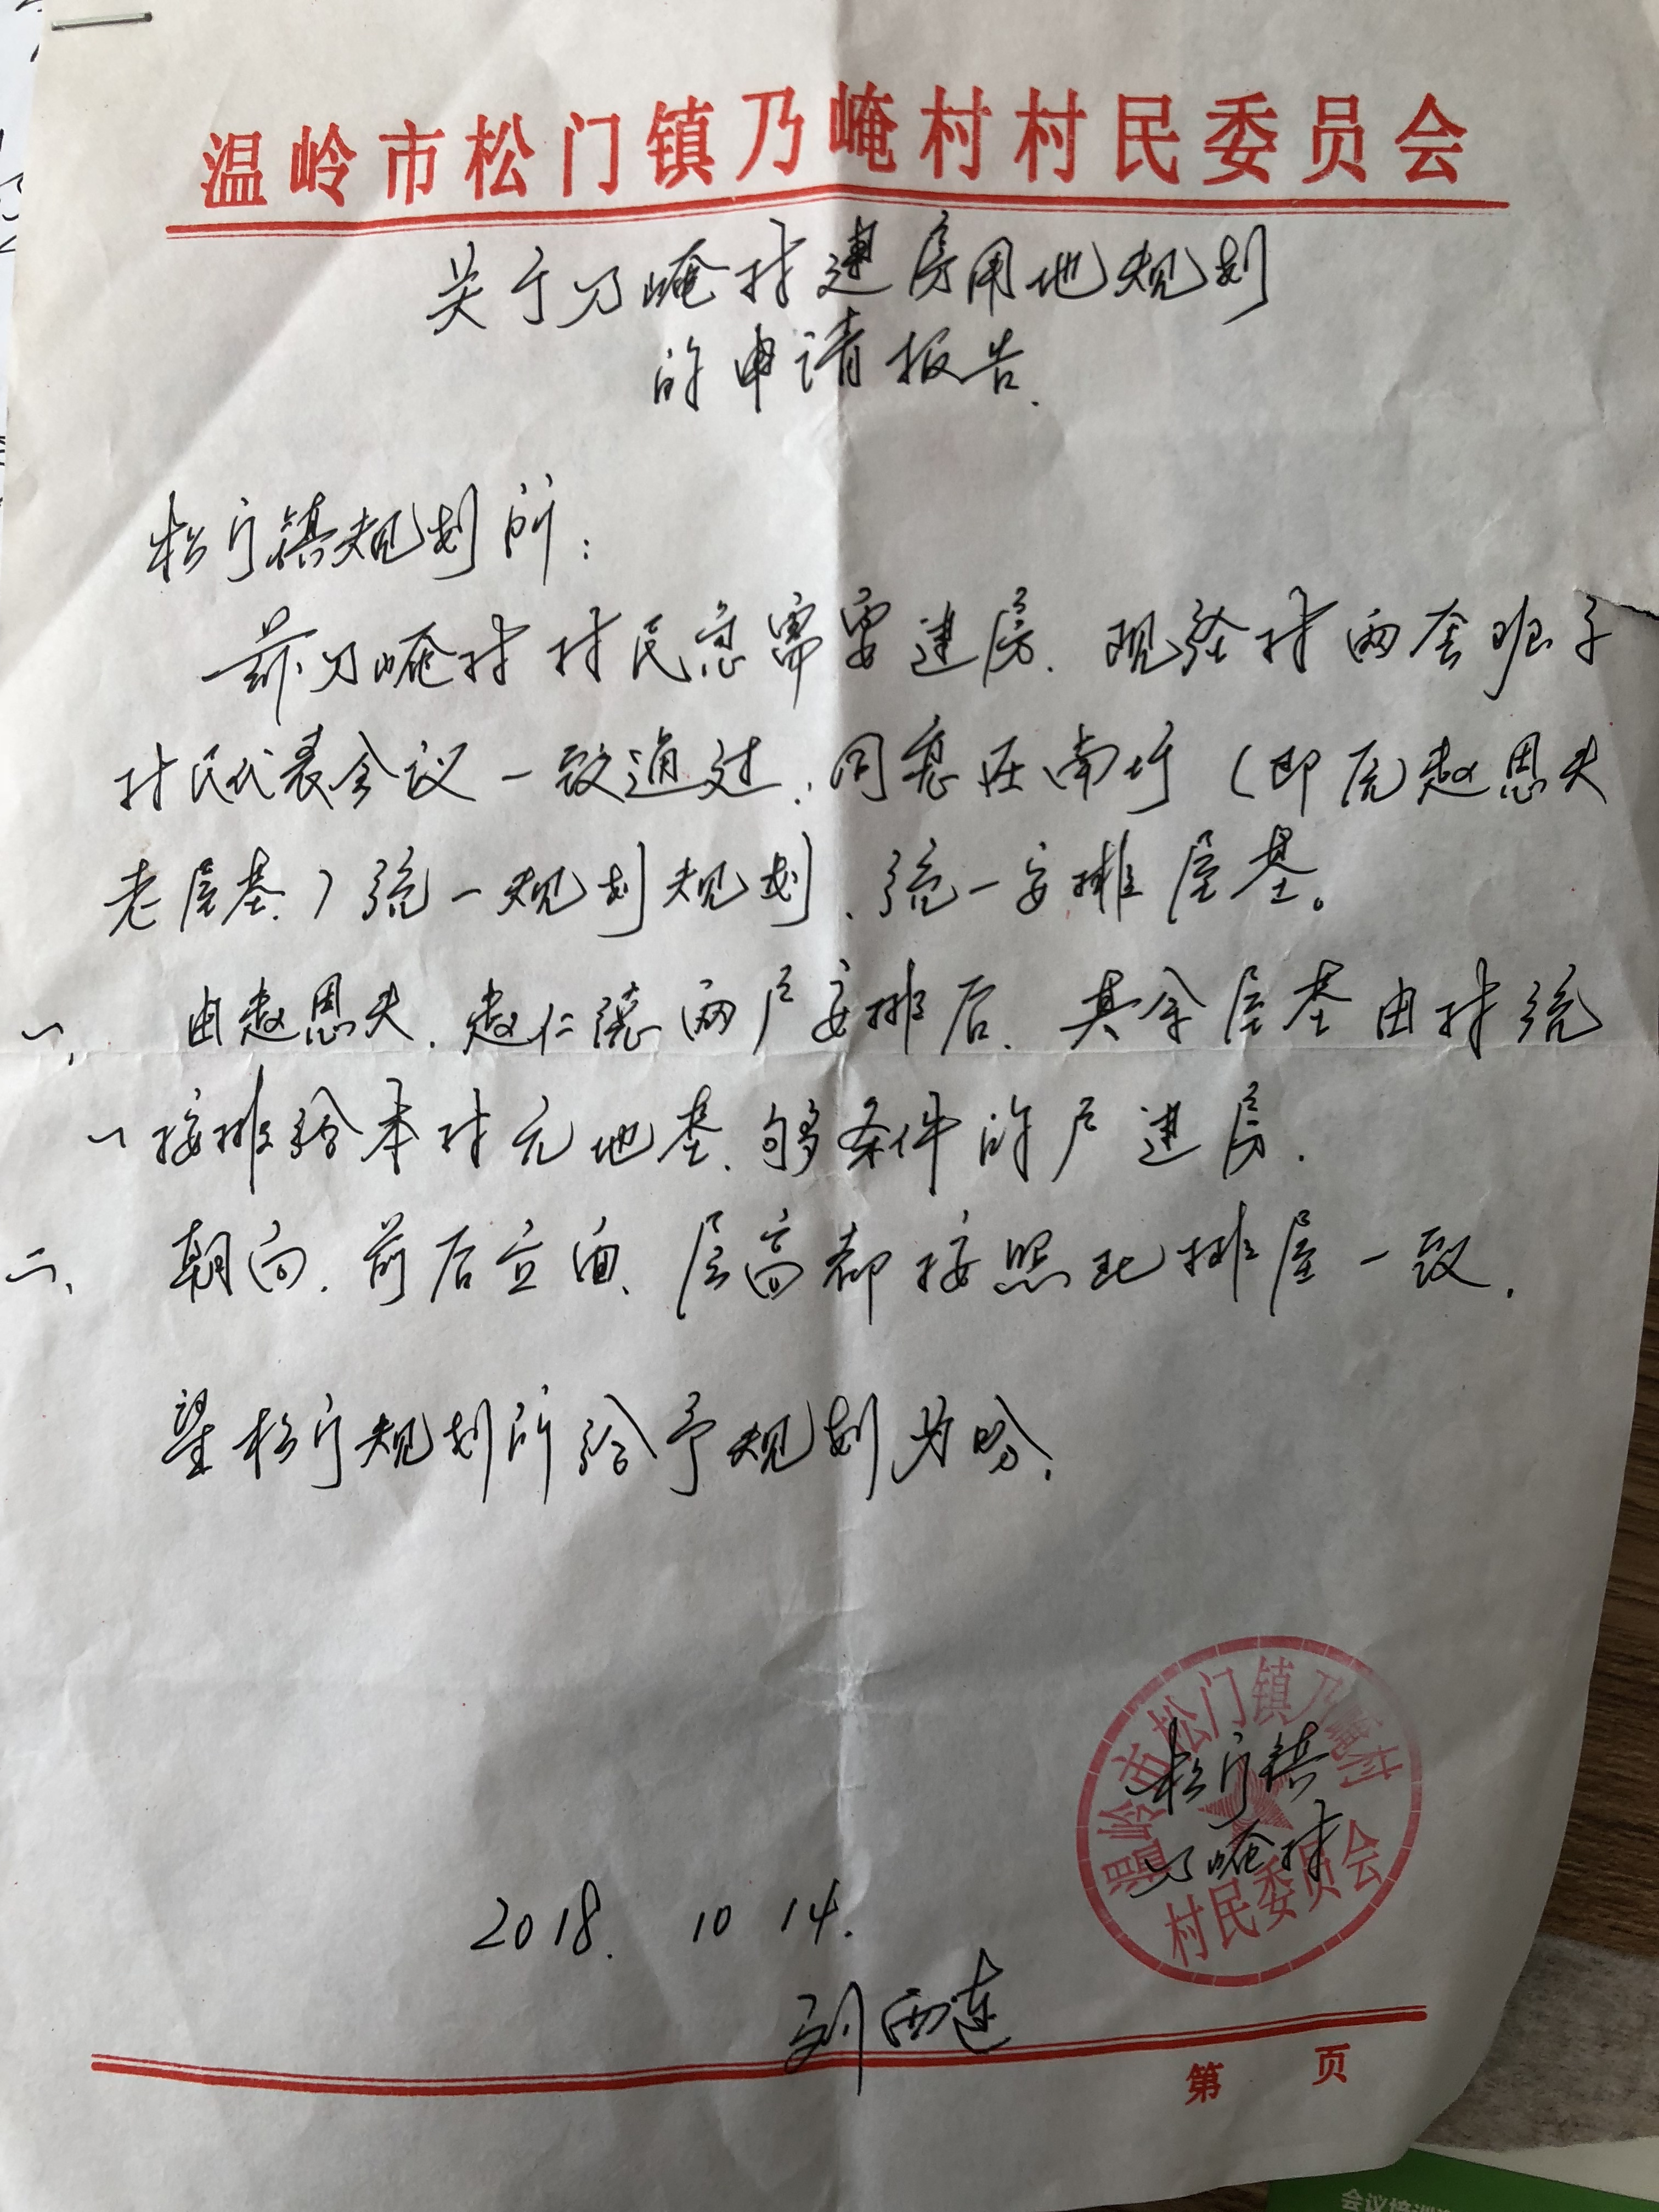 温岭市松门镇乃崦村村民委员会
关于乃崦村建房用地规划
的申请报告.
松门镇规划所:
兹乃崦村村民急需要建房.现经村两套班子
村民代表会议一致通过.同意在南圩(即原赵恩夫
老屋基.)统一规划规划、统一安排屋基。
一、由赵恩夫.赵仁德两户安排后.其余屋基由村统
一按排给本村无地基.够条件的户建房.
二、朝向.前后立面、层高都按照北排屋一致.
望松门规划所给予规划为盼.
温岭市松门镇乃崦村
村民委员会
松门镇
乃崦村
2018. 10 14.
刘西连
第 页
会议培训